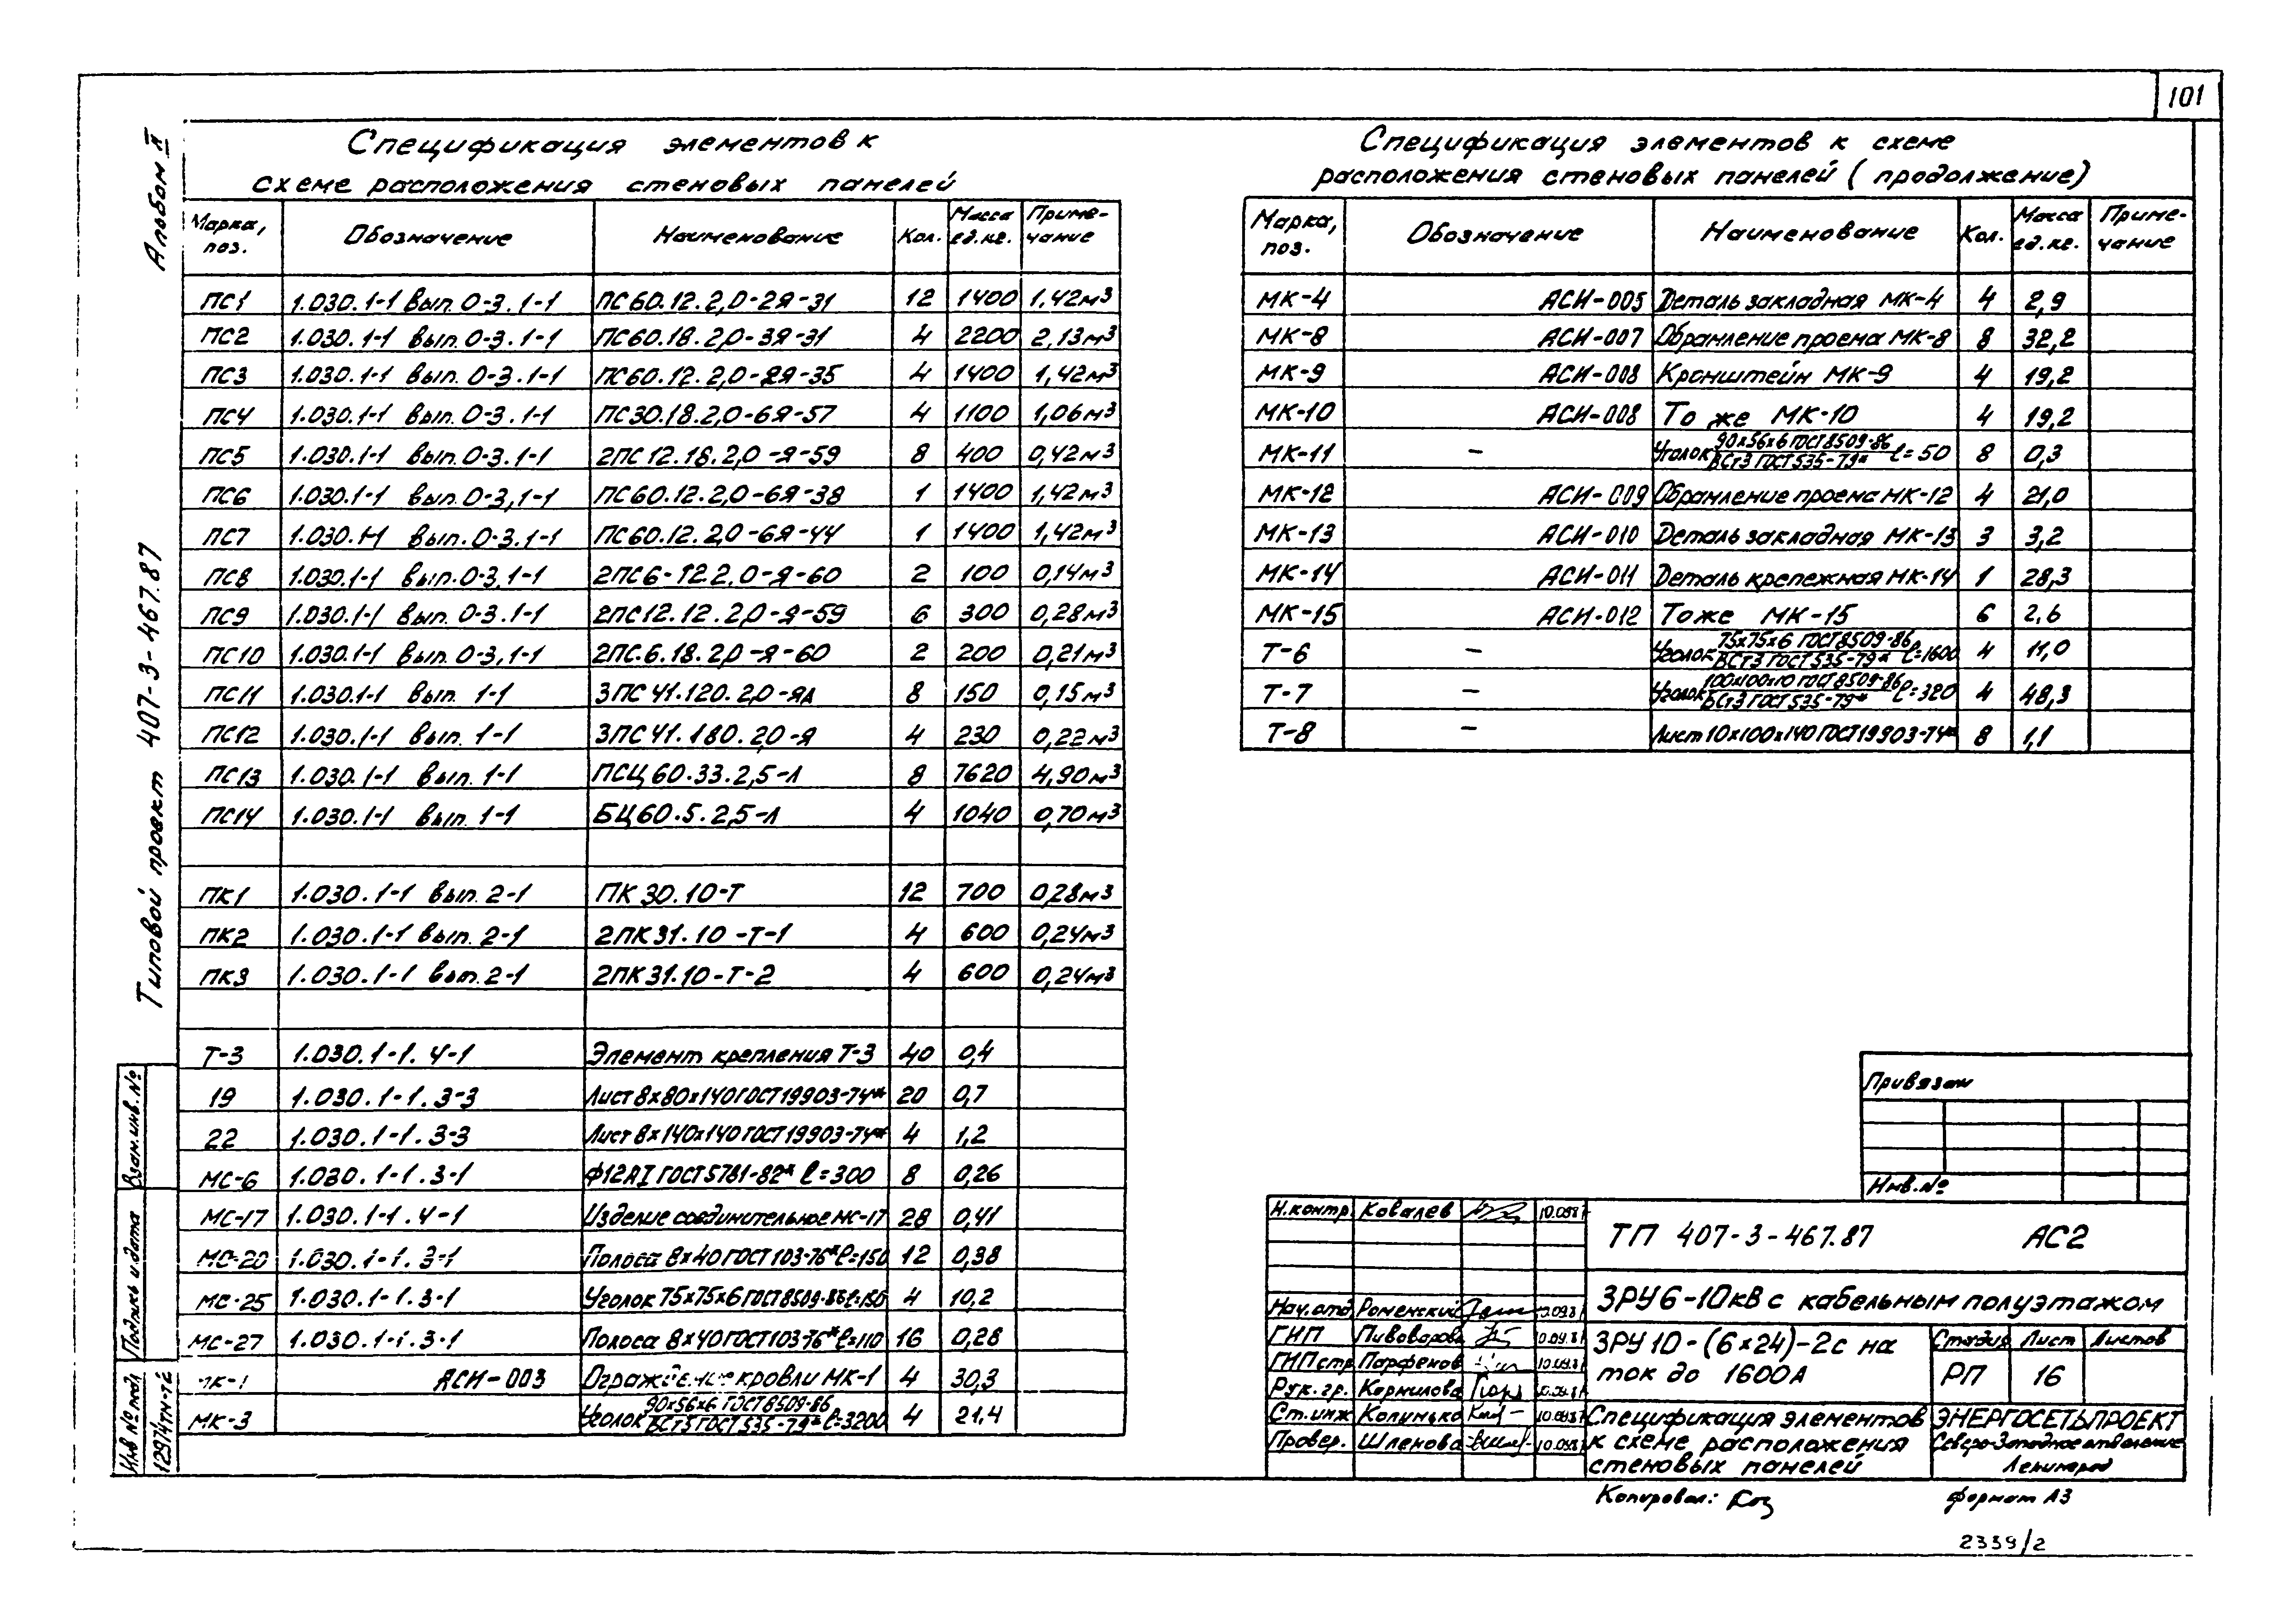 101
Альбом II
Типовой проект 407-3-467.87
Спецификация элементов к
схеме расположения стеновых панелей
Марка, поз. Обозначение Наименование Кол. Масса ед.кг. Приме-чание
ПС1 1.030.1-1 вып. 0-3.1-1 ПС60.12.2,0-2Я-31 12 1400 1,42м³
ПС2 1.030.1-1 вып. 0-3.1-1 ПС60.18.2,0-3Я-31 4 2200 2,13м³
ПС3 1.030.1-1 вып. 0-3.1-1 ПС60.12.2,0-2Я-35 4 1400 1,42м³
ПС4 1.030.1-1 вып. 0-3.1-1 ПС30.18.2,0-6Я-57 4 1100 1,06м³
ПС5 1.030.1-1 вып. 0-3.1-1 2ПС12.18.2,0-Я-59 8 400 0,42м³
ПС6 1.030.1-1 вып. 0-3,1-1 ПС60.12.2,0-6Я-38 1 1400 1,42м³
ПС7 1.030.1-1 вып. 0-3.1-1 ПС60.12.2,0-6Я-44 1 1400 1,42м³
ПС8 1.030.1-1 вып. 0-3,1-1 2ПС6-12.2,0-Я-60 2 100 0,14м³
ПС9 1.030.1-1 вып. 0-3.1-1 2ПС12.12.2,0-Я-59 6 300 0,28м³
ПС10 1.030.1-1 вып. 0-3,1-1 2ПС.6.18.2,0-Я-60 2 200 0,21м³
ПС11 1.030.1-1 вып. 1-1 3ПС41.120.2,0-ЯЛ 8 150 0,15м³
ПС12 1.030.1-1 вып. 1-1 3ПС41.180.2,0-Я 4 230 0,22м³
ПС13 1.030.1-1 вып. 1-1 ПСЦ60.33.2,5-Л 8 7620 4,90м³
ПС14 1.030.1-1 вып. 1-1 БЦ60.5.2,5-Л 4 1040 0,70м³
ПК1 1.030.1-1 вып. 2-1 ПК30.10-Т 12 700 0,28м³
ПК2 1.030.1-1 вып. 2-1 2ПК31.10-Т-1 4 600 0,24м³
ПК3 1.030.1-1 вып. 2-1 2ПК31.10-Т-2 4 600 0,24м³
Т-3 1.030.1-1.4-1 Элемент крепления Т-3 40 0,4
19 1.030.1-1.3-3 Лист 8×80×140 ГОСТ 19903-74* 20 0,7
22 1.030.1-1.3-3 Лист 8×140×140 ГОСТ 19903-74* 4 1,2
МС-6 1.030.1-1.3-1 Ф12АI ГОСТ 5781-82* ℓ=300 8 0,26
МС-17 1.030.1-1.4-1 Изделие соединительное МС-17 28 0,41
МС-20 1.030.1-1.3-1 Полоса 8×40 ГОСТ 103-76* ℓ=150 12 0,38
МС-25 1.030.1-1.3-1 Уголок 75×75×6 ГОСТ 8509-86 ℓ=150 4 10,2
МС-27 1.030.1-1.3-1 Полоса 8×40 ГОСТ 103-76* ℓ=110 16 0,28
МК-1 АСИ-003 Ограждение кровли МК-1 4 30,3
МК-3 Уголок 90×56×6 ГОСТ 8509-86 / ВСт3 ГОСТ 535-79* ℓ=3200 4 21,4
Спецификация элементов к схеме
расположения стеновых панелей (продолжение)
Марка, поз. Обозначение Наименование Кол. Масса ед.кг. Приме-чание
МК-4 АСИ-005 Деталь закладная МК-4 4 2,9
МК-8 АСИ-007 Обрамление проема МК-8 8 32,2
МК-9 АСИ-008 Кронштейн МК-9 4 19,2
МК-10 АСИ-008 То же МК-10 4 19,2
МК-11 - Уголок 90×56×6 ГОСТ 8509-86 / ВСт3 ГОСТ 535-79* ℓ=50 8 0,3
МК-12 АСИ-009 Обрамление проема МК-12 4 21,0
МК-13 АСИ-010 Деталь закладная МК-13 3 3,2
МК-14 АСИ-011 Деталь крепежная МК-14 1 28,3
МК-15 АСИ-012 То же МК-15 6 2,6
Т-6 - Уголок 75×75×6 ГОСТ 8509-86 / ВСт3 ГОСТ 535-79* ℓ=1600 4 11,0
Т-7 - Уголок 100×100×10 ГОСТ 8509-86 / ВСт3 ГОСТ 535-79* ℓ=320 4 48,3
Т-8 - Лист 10×100×140 ГОСТ 19903-74* 8 1,1
Привязан
Инв.№
Н.контр. Ковалев 10.0987
Нач.отд Роменский
ГИП Пивоварова
ГИПстр Парфенов
Рук.гр. Корнилова
Ст.инж Колинько
Провер. Шленова
ТП 407-3-467.87 АС2
ЗРУ 6-10кВ с кабельным полуэтажом
ЗРУ 10-(6×24)-2с на
ток до 1600А
Стадия Лист Листов
РП 16
Спецификация элементов
к схеме расположения
стеновых панелей
ЭНЕРГОСЕТЬПРОЕКТ
Северо-Западное отделение
Ленинград
Копировал:
формат А3
2339/2
Взам.инв.№
Подпись и дата
Инв № подл
12914тм-т2